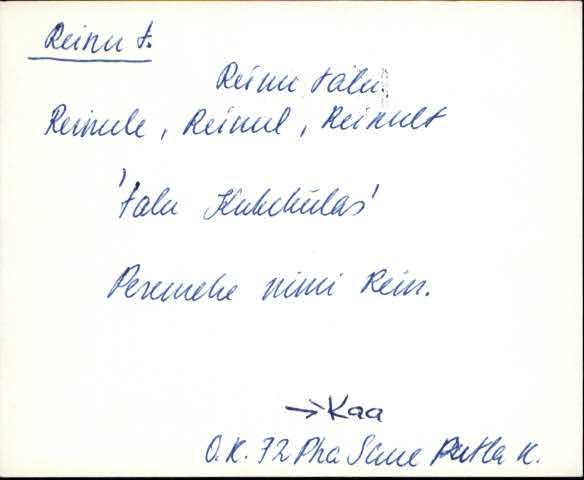 Reinu t.
Reinu talu
Reinule, Reinul, Reinult
'talu Kuke külas'
Peremehe nimi Rein.
→ Kaa
O.K. 72 Pha Saue Putla k.